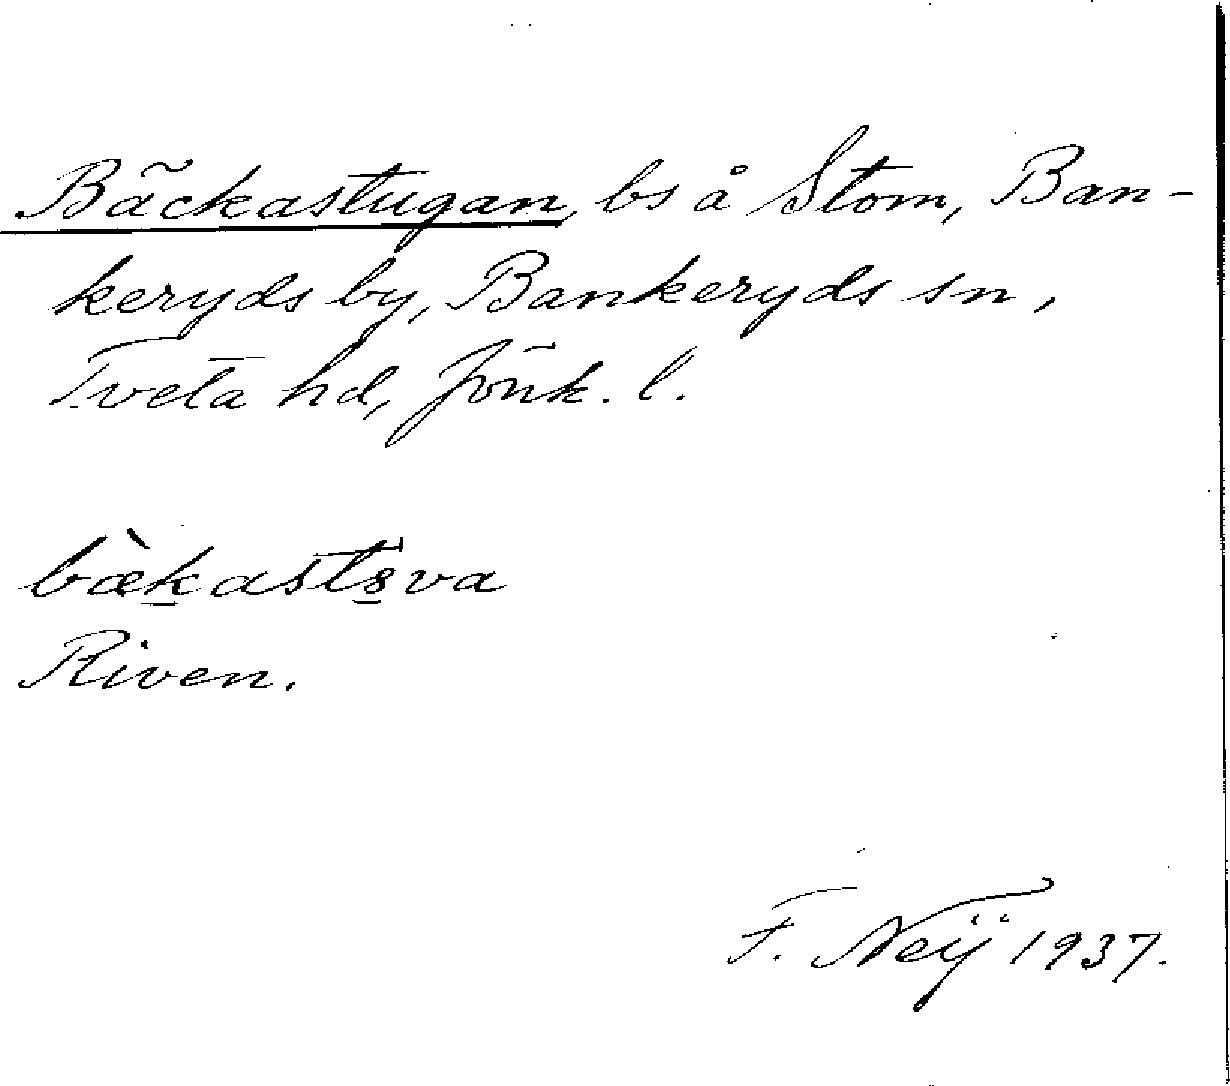 Bäckastugan, bs å Stom, Ban-
keryds by, Bankeryds sn,
Tveta hd, Jönk. l.
bæ̀kastȣva
Riven.
F. Neÿ 1937.